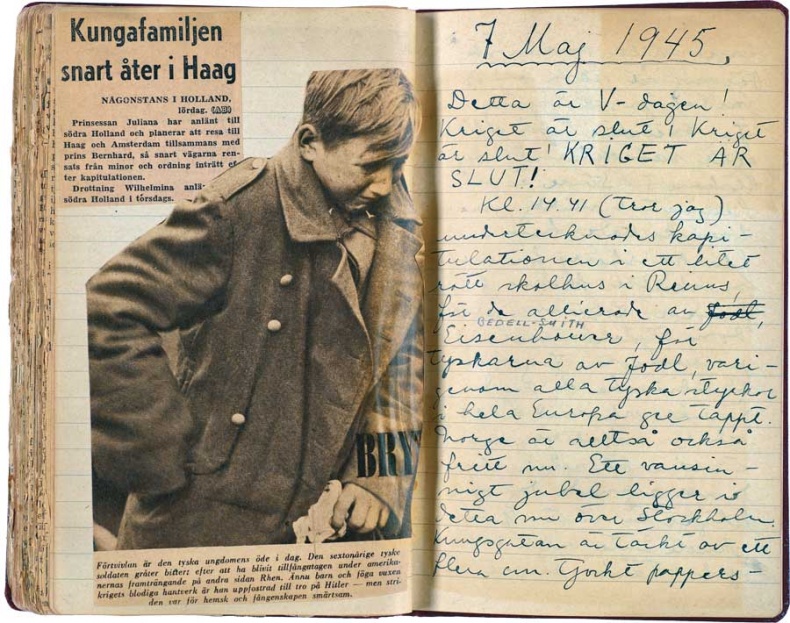 Kungafamiljen
snart åter i Haag
NÅGONSTANS I HOLLAND,
lördag. (AB)
Prinsessan Juliana har anlänt till
södra Holland och planerar att resa till
Haag och Amsterdam tillsammans med
prins Bernhard, så snart vägarna ren-
sats från minor och ordning inträtt ef-
ter kapitulationen.
Drottning Wilhelmina anlä-
södra Holland i torsdags.
BRY
Förtvivlan är den tyska ungdomens öde i dag. Den sextonårige tyske
soldaten gråter bittert efter att ha blivit tillfångatagen under amerika-
nernas framträngande på andra sidan Rhen. Ännu barn och föga vuxen
krigets blodiga hantverk är han uppfostrad till tro på Hitler — men stri-
den var för hemsk och fångenskapen smärtsam.
7 Maj 1945.
Detta är V-dagen!
Kriget är slut! Kriget
är slut! KRIGET ÄR
SLUT!
Kl. 14.41 (tror jag)
undertecknades kapi-
tulationen i ett litet
rött skolhus i Reims,
för de allierade av Jodl,
BEDELL-SMITH
Eisenhower, för
tyskarna av Jodl, vari-
genom alla tyska styrkor
i hela Europa ge tappt.
Norge är alltså också
fritt nu. Ett vansin-
nigt jubel ligger i
detta nu över Stockholm.
Kungsgatan är täckt av ett
flera cm. tjockt pappers-